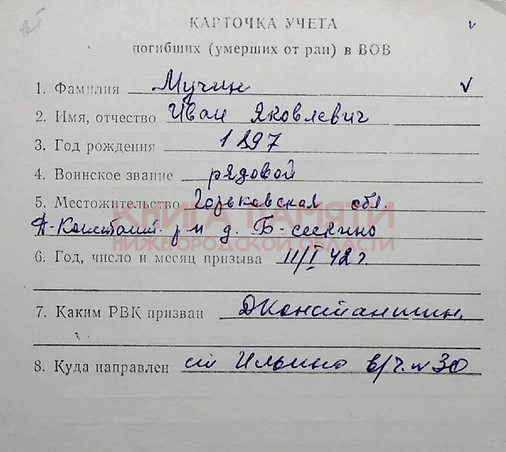 КАРТОЧКА УЧЕТА
погибших (умерших от ран) в ВОВ
1. Фамилия Мучин
2. Имя, отчество Иван Яковлевич
3. Год рождения 1897
4. Воинское звание рядовой
5. Местожительство Горьковская обл.
Д-Констант. р-н д. Б-сескино
КНИГА ПАМЯТИ
НИЖЕГОРОДСКОЙ ОБЛАСТИ
6. Год, число и месяц призыва 11/I 42 г.
7. Каким РВК призван ДКонстантин.
8. Куда направлен ст Ильино в/ч. № 30